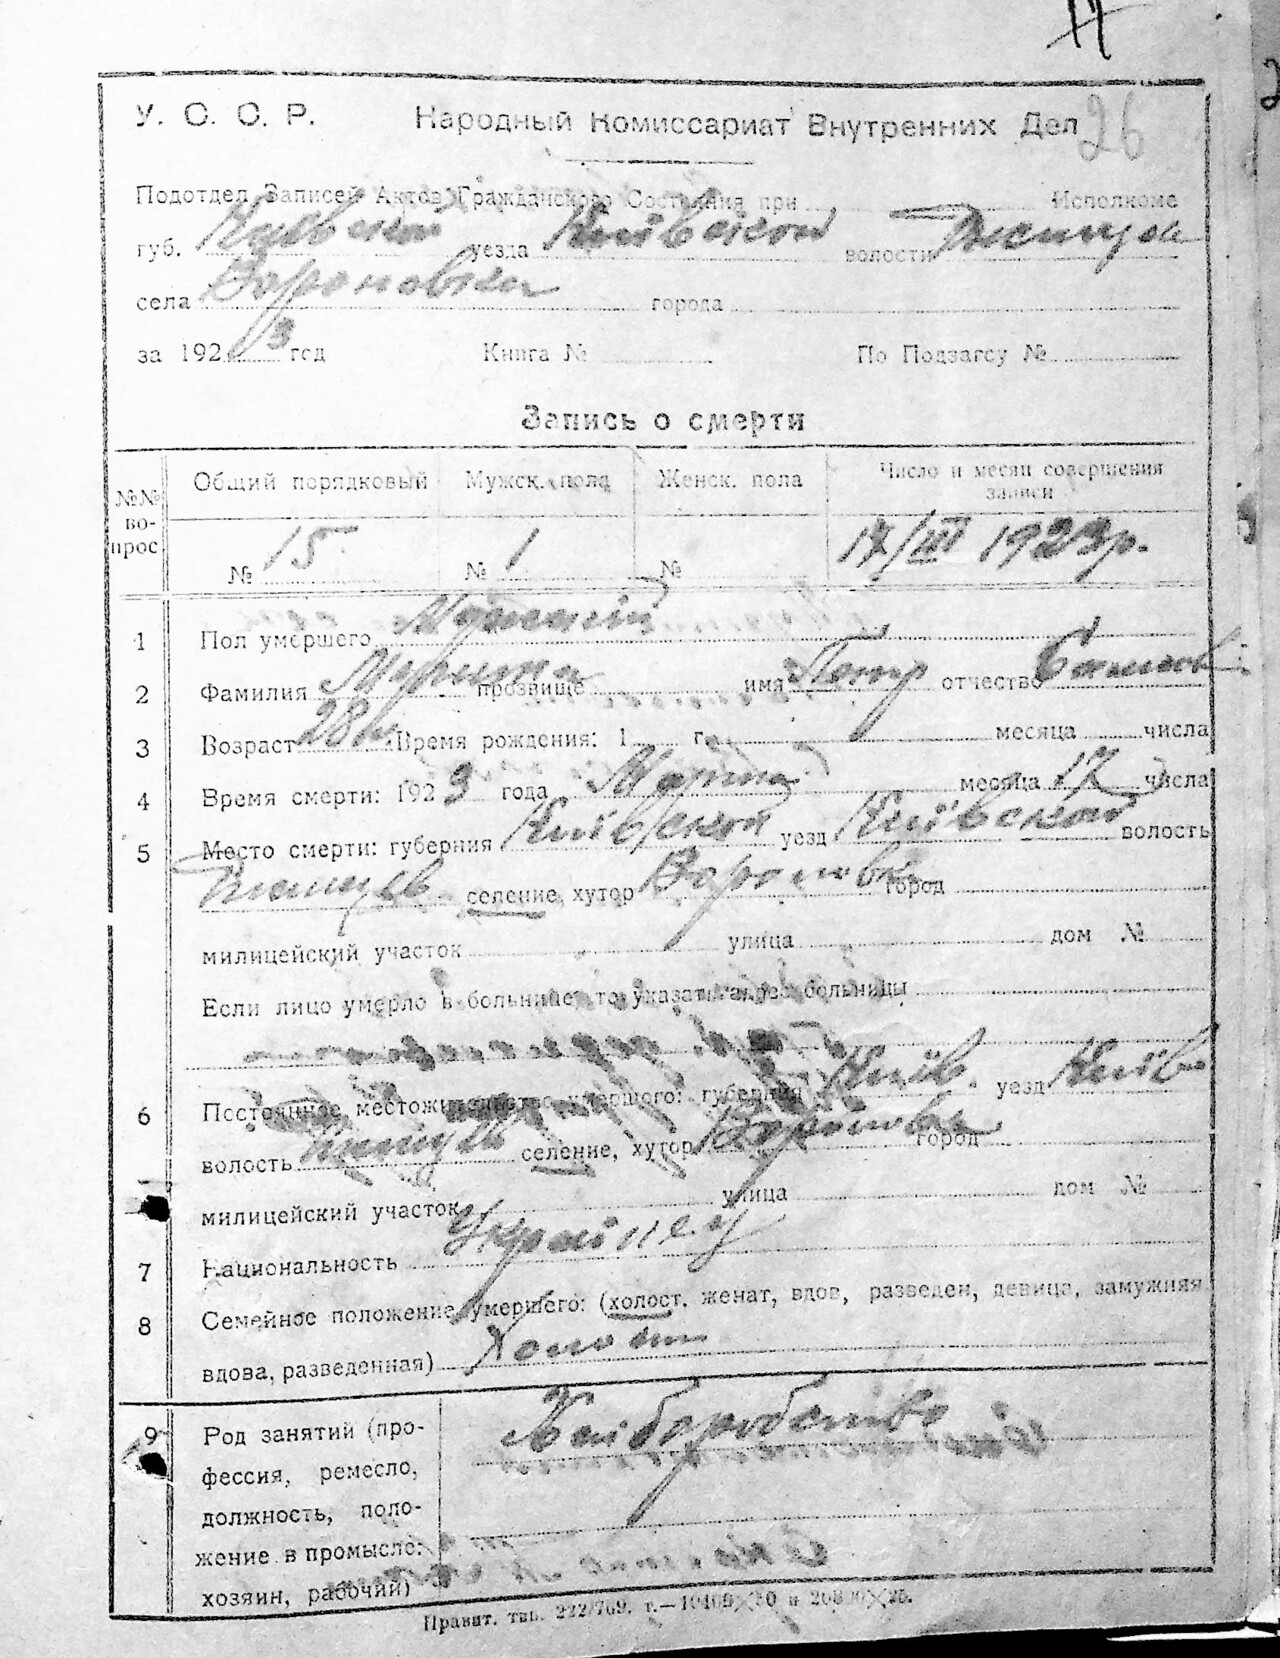 26
У. С. С. Р. Народный Комиссариат Внутренних Дел
Подотдел Записей Актов Гражданского Состояния при Исполкоме
губ. Київской уезда Київской волости
села Вороновка города
за 1923 год Книга № По Подзагсу №
Запись о смерти
№№ вопрос Общий порядковый Мужск. пола Женск. пола Число и месяц совершения записи
№ 15 № 1 № 17/III 1923р.
1 Пол умершего
2 Фамилия прозвище имя Петр отчество
3 Возраст 28 Время рождения: 1 г. месяца числа
4 Время смерти: 1923 года Марта месяца 17 числа
5 Место смерти: губерния Київской уезд Київской волость
селение, хутор Вороновка город
милицейский участок улица дом №
Если лицо умерло в больнице, то указать адрес больницы
6 Постоянное местожительство умершего: губерния Київ. уезд Київ
волость селение, хутор Вороновка город
милицейский участок улица дом №
7 Национальность Українец
8 Семейное положение умершего: (холост, женат, вдов, разведен, девица, замужняя
вдова, разведенная) Холост
9 Род занятий (про- Хліборобство
фессия, ремесло,
должность, поло-
жение в промысле:
хозяин, рабочий)
Правит. тип.